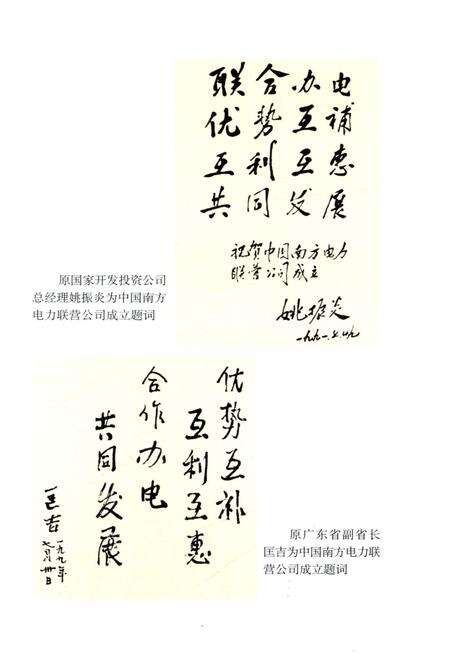 联合办电
优势互补
互利互惠
共同发展
祝贺中国南方电力
联营公司成立
姚振炎
原国家开发投资公司
总经理姚振炎为中国南方
电力联营公司成立题词
优势互补
互利互惠
合作办电
共同发展
匡吉
一九九一年
原广东省副省长
匡吉为中国南方电力联
营公司成立题词